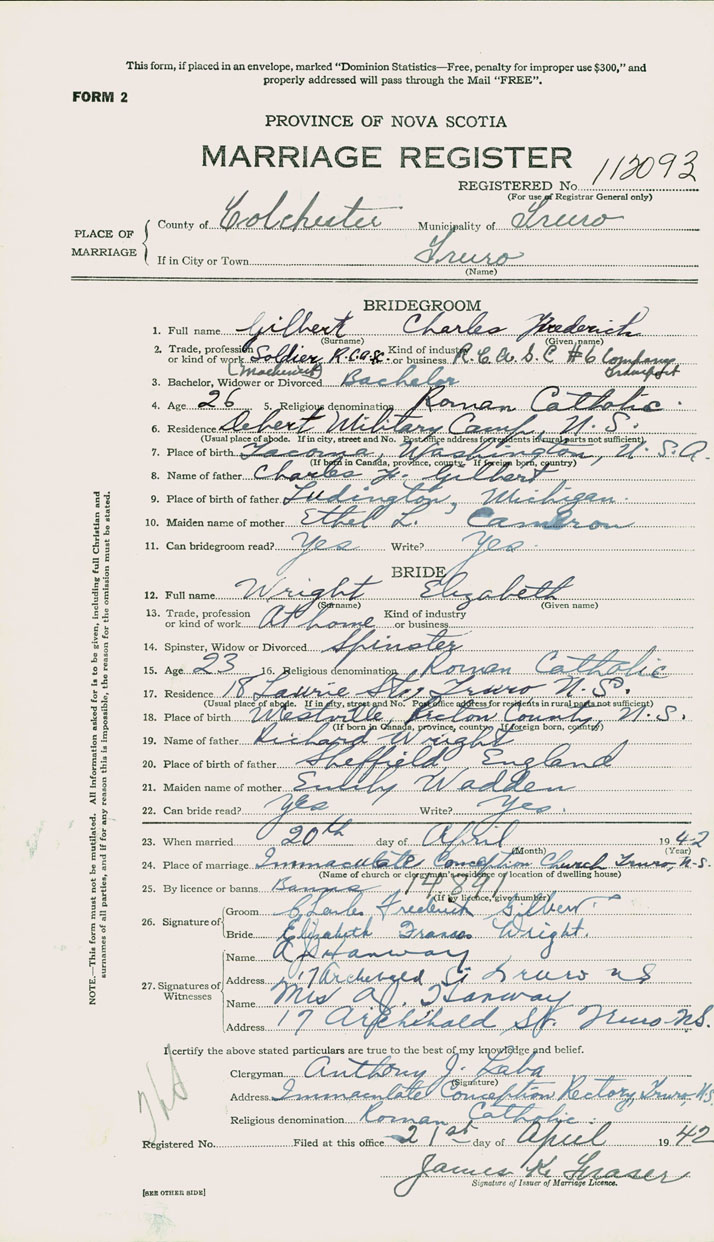 This form, if placed in an envelope, marked "Dominion Statistics—Free, penalty for improper use $300," and
properly addressed will pass through the Mail "FREE".
FORM 2
PROVINCE OF NOVA SCOTIA
MARRIAGE REGISTER
REGISTERED No. 112093
(For use of Registrar General only)
PLACE OF MARRIAGE
County of Colchester Municipality of Truro
If in City or Town Truro
(Name)
BRIDEGROOM
1. Full name Gilbert Charles Frederick
(Surname) (Given name)
2. Trade, profession or kind of work Soldier R.C.A.S.C. (Machinist) Kind of industry or business R.C.A.S.C #6 Company Transport
3. Bachelor, Widower or Divorced Bachelor
4. Age 26 5. Religious denomination Roman Catholic.
6. Residence Debert Military Camp, N.S.
(Usual place of abode. If in city, street and No. Post office address for residents in rural parts not sufficient)
7. Place of birth Tacoma, Washington, U.S.A.
(If born in Canada, province, county. If foreign born, country)
8. Name of father Charles F. Gilbert
9. Place of birth of father Ludington, Michigan.
10. Maiden name of mother Ethel L. Cameron
11. Can bridegroom read? Yes Write? Yes.
BRIDE
12. Full name Wright Elizabeth
(Surname) (Given name)
13. Trade, profession or kind of work At home Kind of industry or business
14. Spinster, Widow or Divorced Spinster
15. Age 23 16. Religious denomination Roman Catholic
17. Residence 18 Laurie St., Truro N.S.
(Usual place of abode. If in city, street and No. Post office address for residents in rural parts not sufficient)
18. Place of birth Westville, Pictou County, N.S.
(If born in Canada, province, county. If foreign born, country)
19. Name of father Richard Wright
20. Place of birth of father Sheffield, England
21. Maiden name of mother Emily Wadden
22. Can bride read? Yes Write? Yes.
23. When married 20th day of April 1942
(Month) (Year)
24. Place of marriage Immaculate Conception Church Truro, N.S.
(Name of church or clergyman's residence or location of dwelling house)
25. By licence or banns Banns 14891
(If by licence, give number)
26. Signature of
Groom Charles Frederick Gilbert
Bride Elizabeth Frances Wright.
27. Signatures of Witnesses
Name A J Hanway
Address 17 Archibald St Truro NS
Name Mrs A.J. Hanway
Address 17 Archibald St. Truro N.S.
I certify the above stated particulars are true to the best of my knowledge and belief.
Clergyman Anthony J. Laba
(Signature)
Address Immaculate Conception Rectory, Truro, N.S
Religious denomination Roman Catholic.
Registered No. Filed at this office 21st day of April 1942
James K. Fraser
Signature of Issuer of Marriage Licence.
[SEE OTHER SIDE]
NOTE.—This form must not be mutilated. All information asked for is to be given, including full Christian and
surnames of all parties, and if for any reason this is impossible, the reason for the omission must be stated.